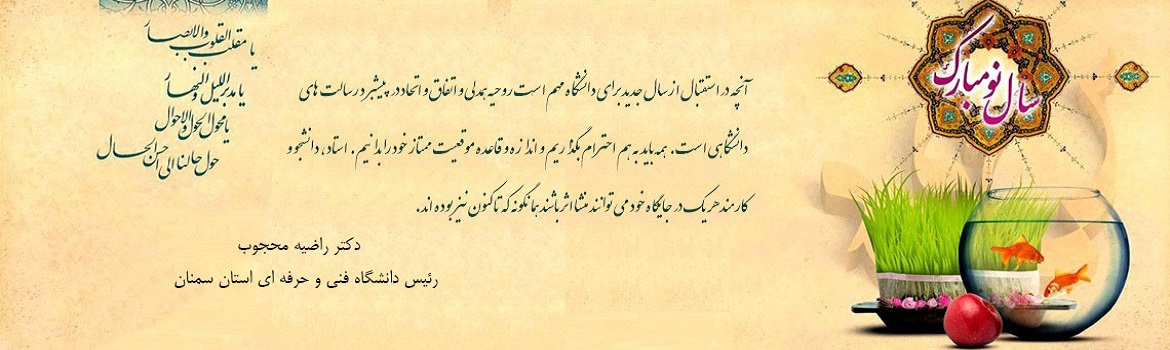 سال نو مبارک
آنچه در استقبال از سال جدید برای دانشگاه مهم است روحیه همدلی و اتفاق و اتحاد در پیشبرد رسالت های
دانشگاهی است. همه باید به هم احترام بگذاریم و اندازه و قاعده موقعیت ممتاز خود را بدانیم. استاد، دانشجو و
کارمند هر یک در جایگاه خود می توانند منشا اثر باشند همانگونه که تاکنون نیز بوده اند.
دکتر راضیه محجوب
رئیس دانشگاه فنی و حرفه ای استان سمنان
یا مقلب القلوب والابصار
یا مدبر اللیل والنهار
یا محول الحول والاحوال
حول حالنا الی احسن الحال